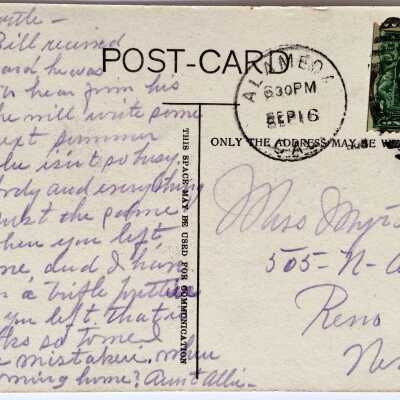 Bill received
card he was
hear from his
he will write some
next summer
she isn't so busy.
and everything
just the same
when you left,
me, and I have
a trifle
you left, that is
so to me. I
mistaken. when
coming home? Aunt Allie-
POST-CARD
THIS SPACE MAY BE USED FOR COMMUNICATION
ALAMEDA
630PM
SEP 16
CAL.
ONLY THE ADDRESS MAY BE
Miss
505-N-
Reno
Nev